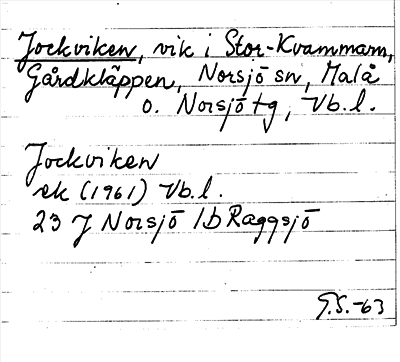 Jockviken, vik i Stor-Kvammarn,
Gårdkläppen, Norsjö sn, Malå
o. Norsjö tg, Vb. l.
Jockviken
ek (1961) Vb. l.
23 J Norsjö 1b Raggsjö
G.S. -63